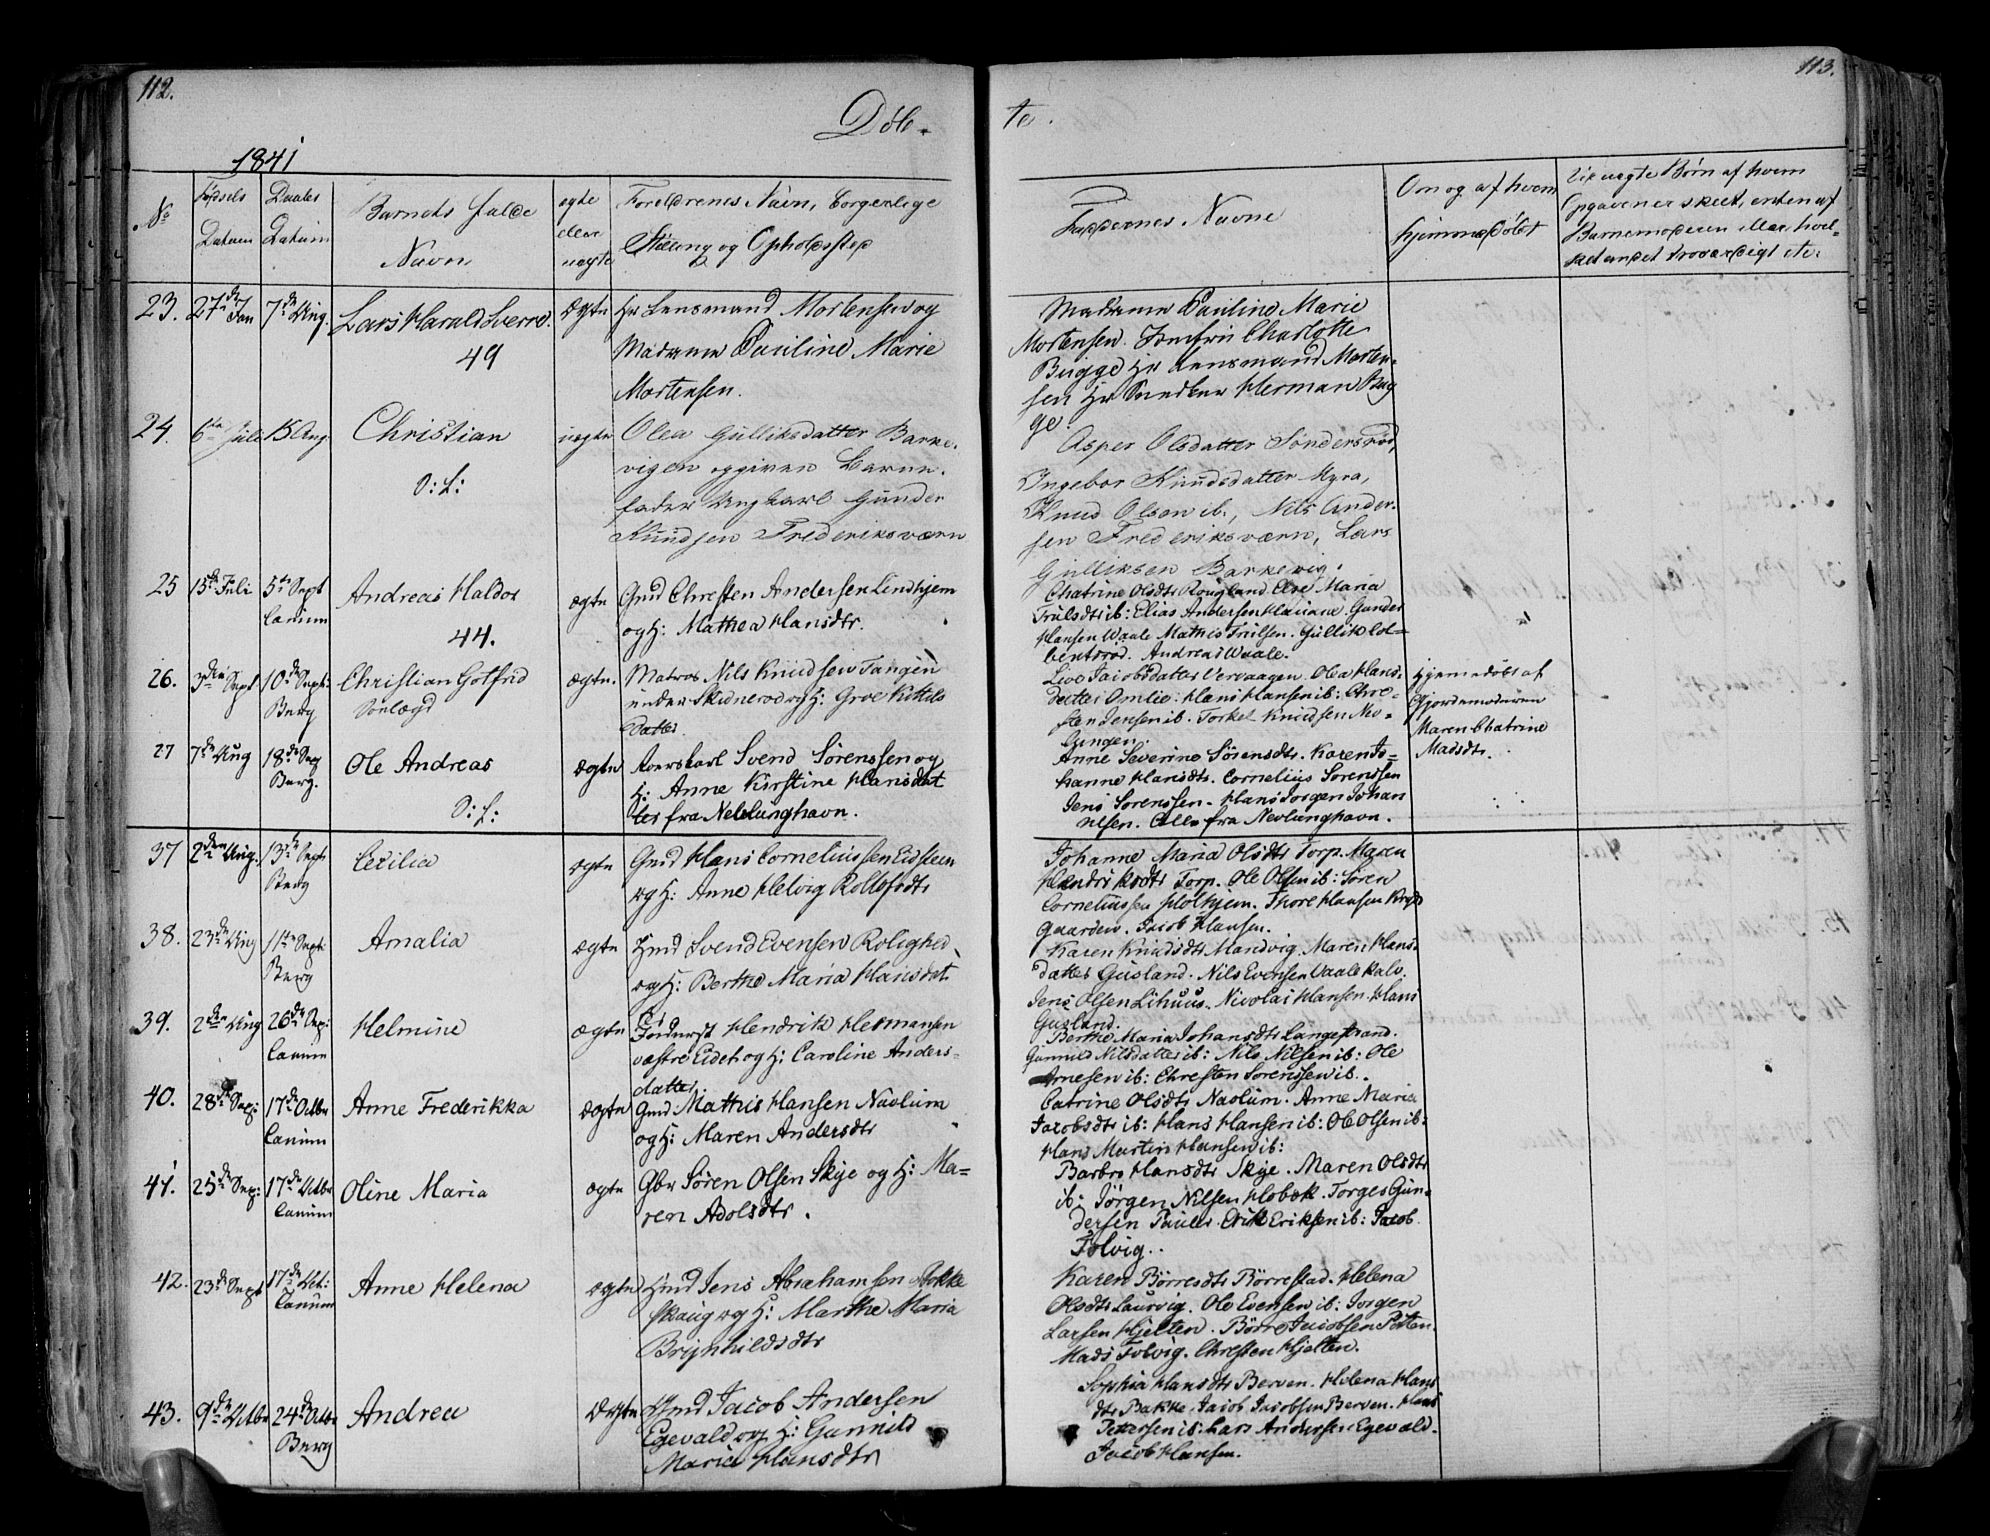 112.
113.
Døb-
te.
1841
No
Fødsels
Datum
Daabs
Datum
Barnets fulde
Navn
ægte
eller
uægte
Forældrenes Navn, borgerlige
Stilling og Opholdssted
Faddernes Navne
Om og af hvem
hjemmedøbt
Ved uægte Børn af hvem
Opgaven er skeet, enten af
Barnemoderen eller hvil-
ket andet troværdigt etc:
23. 27de Jan 7de Aug. Lars Harald Sverre. ægte Hr Lensmand Mortensen og
49
Madame Pauline Marie
Mortensen.
Madame Pauline Marie
Mortensen. Jomfru Charlotte
Bugge Hr Lensmand Morten-
sen Hr Herman Bug
ge.
24. 6te Juli 15 Aug. Christian uægte Olea Gulliksdatter Barke-
S:f:
vigen opgiven Barne-
fader Ungkarl Gunder
Knudsen Frederiksværn
Asper Olsdatter Sondersrød,
Ingebor Knudsdatter Myra,
Knud Olsen ib:, Nils Ander-
sen Frederiksværn, Lars
Gulliksen Barkevig.
25 15de Juli 5te Sept
Tanum
Andreas Haldor
44.
ægte Gmd Chresten Andersen Lindhjem
og H: Mathea Hansdtr.
Chatrine Olsdtr Rougland. Else Maria
Trulsdtr ib: Elias Andersen Gunder
Hansen Waale Mathis Trulsen. Gullik Col-
bentsrød. Andreas Waale.
26. 3die Sept 10de Sept:
Berg
Christian Gotfrid
ægte. Matros Nils Knudsen Tangen
under Skidnerød og H: Groe Kittils
datter
Live Jacobsdatter Vervaagen. Olea Hans-
datter Omlie: Hans Hansen ib: Chre-
sten Jensen ib. Torkel Knudsen Nev-
lungen.
Hjemmedøbt af
Gjordemoderen
Maren Chatrine
Madsdtr.
27 7de Aug 18de Sep
Berg.
Ole Andreas
S:f:
ægte Svend Sørenssen og
H: Anne Kirstine Hansdat
ter fra Nevlunghavn.
Anne Severine Sørensdtr. Karen Jo-
hanne Hansdtr. Cornelius Sorenssen
Jens Sorenssen. Hans Jorgen Johan
nesen. Alle fra Nevlunghavn.
37 2den Aug. 13de Sept
Berg
Cecilia
ægte Gmd Hans Corneliussen Eidsteen
og H: Anne Helvig Rollefsdtr
Johanne Maria Olsdtr Torp. Maren
Hendriksdtr Torp. Ole Olsen ib: Søren
Corneliussen Holkjem. Thore Hansen
Gaarden. Jacob Hansen.
38. 23de Aug 11te Sept:
Berg
Amalia
ægte Hmd Svend Evensen Rolighed
og H: Berthe Maria Hansdat
Karen Knudsdtr Mandvig. Maren Hans-
datter Gusland. Nils Evensen Vaalekalv.
Jens Olsen Lihuus. Nicolai Hansen. Hans
Gusland.
39. 2den Aug 26de Sep:
Tanum
Helmine
ægte Hendrik Hermansen
vestre Eidet og H: Caroline Anders-
datter.
Berthe Maria Johansdtr Langestrand.
Gunnild Nilsdatter ib: Nils Nilsen ib: Ole
Arnesen ib: Chresten Sorenssen ib.
40. 28de Sep: 17de Octbr
Tanum
Anne Frederikka
ægte Gmd Mathis Hansen Navlum
og H: Maren Andersdtr
Catrine Olsdtr Navlum. Anne Maria
Jacobsdtr ib: Hans Hansen ib: Ole Olsen ib:
Hans Martin Hansen ib:
41. 25de Sep: 17de Octbr
Tanum
Oline Maria
ægte Gbr Søren Olsen Skye og H: Ma-
ren Adolsdtr.
Barbro Hansdtr Skye. Maren Olsdtr
ib: Jørgen Nilsen Hobæk. Torger Gun-
dersen Pauler. Erik Eriksen ib: Jacob
Folvig.
42. 23de Sept 17de Oct:
Tanum
Anne Helena
ægte Hmd Jens Abrahamsen Bokke
skaug og H: Marthe Maria
Brynhildsdtr
Karen Børresdtr Børrestad. Helena
Olsdtr Laurvig. Ole Evensen ib: Jorgen
Larsen Hjelten. Børre Jacobsen
Mads Folvig. Chresten Hjelten.
43. 9de Octbr 24de Octbr
Berg
Andrea
ægte Hmd Jacob Andersen
Egevald og H: Gunnild
Maria Hansdtr
Sophia Hansdtr Berven. Helena Hans
dtr Bakke. Jacob Jacobsen Berven. Hans
Pettersen ib: Lars Anderssen Egevald.
Jacob Hansen.